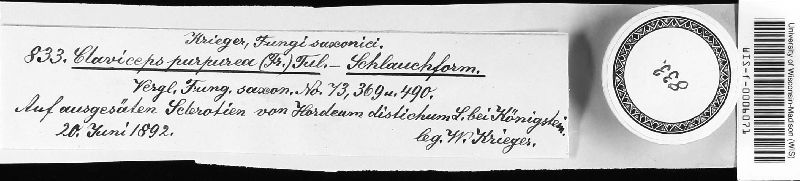 Krieger, Fungi saxonici.
833. Claviceps purpurea (Fr.) Tul. — Schlauchform.
Vergl. Fung. saxon. No. 73, 369 u. 490.
Auf ausgesäten Sclerotien von Hordeum distichum L. bei Königstein.
20. Juni 1892.
leg. W. Krieger.
833.
WIS-f-0004021
University of Wisconsin-Madison (WIS)